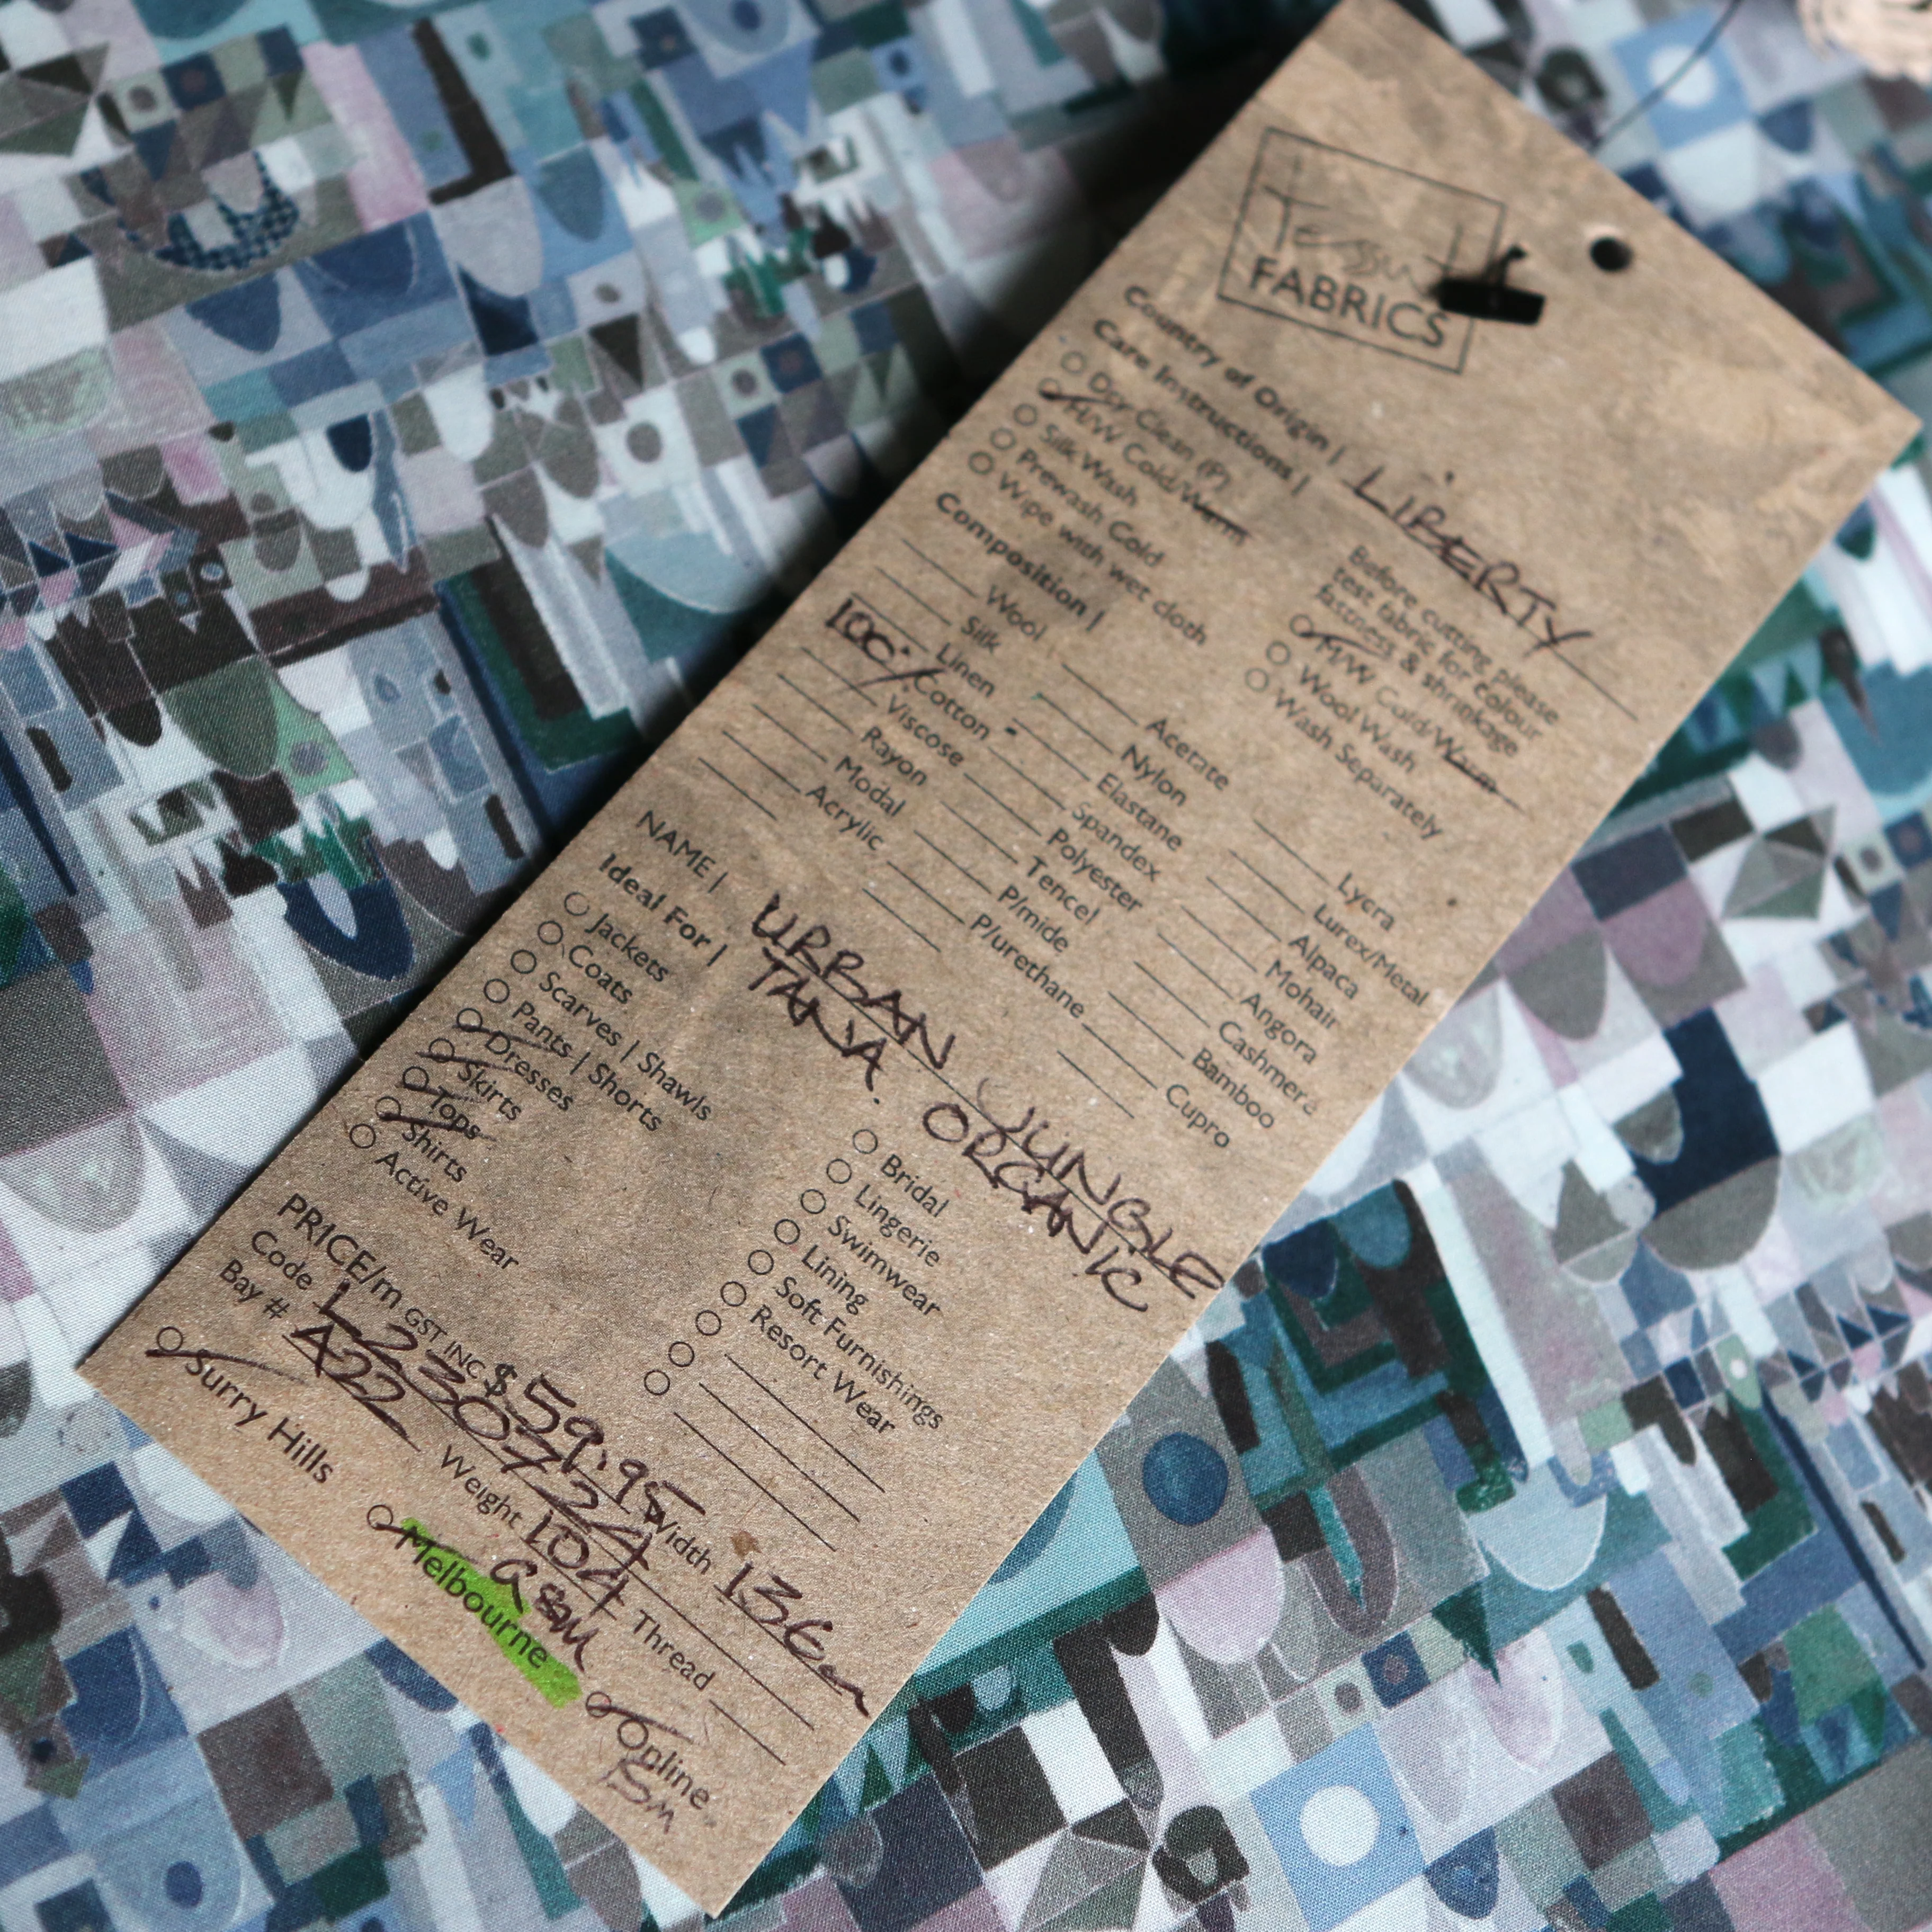 Tessuti
FABRICS
Country of Origin | LIBERTY
Care Instructions |
Dry Clean (P)
H/W Cold/Warm
Silk Wash
Prewash Cold
Wipe with wet cloth
Before cutting please
test fabric for colour
fastness & shrinkage
M/W Cold/Warm
Wool Wash
Wash Separately
Composition |
Wool
Silk
Linen
100% Cotton
Viscose
Rayon
Modal
Acrylic
Acetate
Nylon
Elastane
Spandex
Polyester
Tencel
P/mide
P/urethane
Lycra
Lurex/Metal
Alpaca
Mohair
Angora
Cashmere
Bamboo
Cupro
NAME | URBAN JUNGLE
TANA ORGANIC
Ideal For |
Jackets
Coats
Scarves | Shawls
Pants | Shorts
Dresses
Skirts
Tops
Shirts
Active Wear
Bridal
Lingerie
Swimwear
Lining
Soft Furnishings
Resort Wear
PRICE/m GST INC $59.95
Code L230724 Width 136cm
Bay # A22 Weight 104 Thread
GSM
Surry Hills Melbourne Online